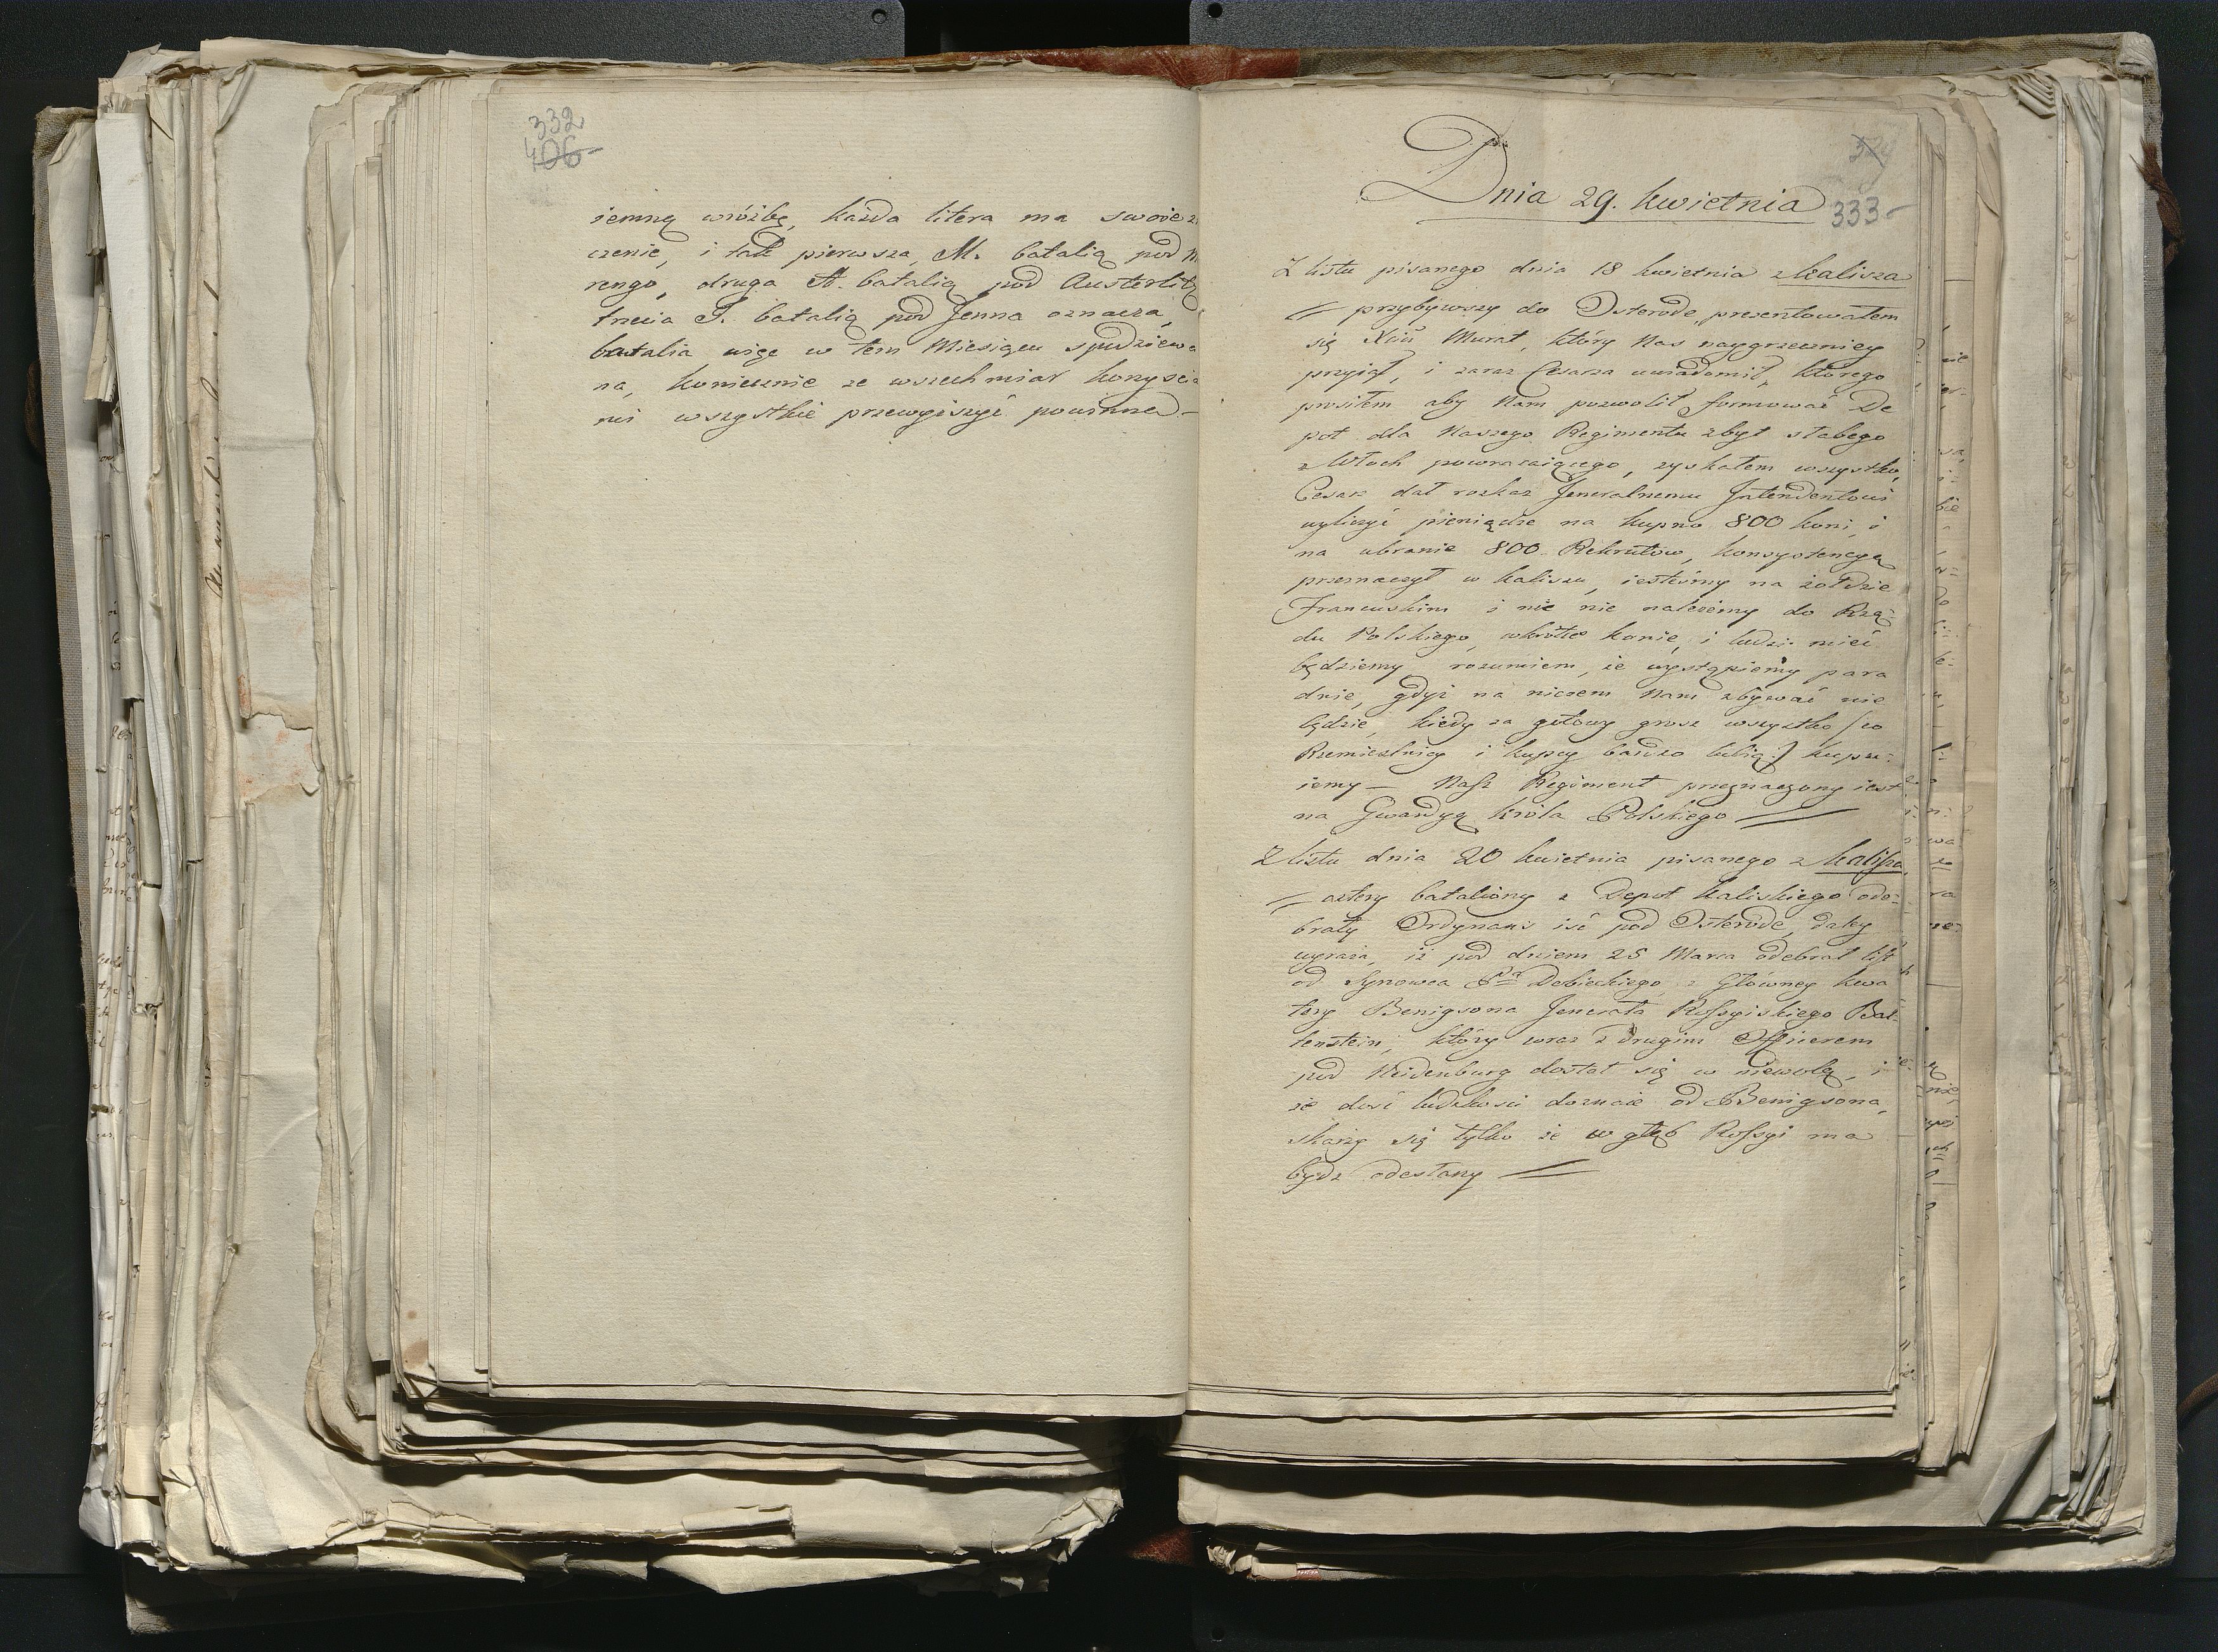 332
406
iemną wróżbę, każda litera ma swoie
czenie, i tak pierwsza, M. batalią pod
rengo, druga A. batalią pod Austerlitz
trzecia I. batalią pod Jenna oznacza,
batalia więc w tem Miesiącu spodziewa
na, koniecznie ze wszechmiar korzyścia
mi wszystkie przewyższyć powinna —
Dnia 29. kwietnia
333
Z listu pisanego dnia 18 kwietnia z Kalisza
= przybywszy do Osterode, prezentowałem
się Xciu Murat, który Nas naygrzeczniey
przyiął, i zaraz Cesarza uwiadomił, którego
prosiłem aby Nam pozwolił formować De
pot dla Naszego Regimentu zbyt słabego
z Włoch powracaiącego, zyskałem wszystko,
Cesarz dał rozkaz Jeneralnemu Intendentowi
wyliczyć pieniądze na kupno 800 koni, i
na ubranie 800 Rekrutów, konsystencyą
przeznaczył w Kaliszu, iesteśmy na żołdzie
Francuskim i nic nie należemy do Rzą:
du Polskiego, wkrótce konie, i ludzi mieć
będziemy rozumiem, że wystąpiemy para
dnie, gdyż na niczem Nam zbywać nie
będzie, kiedy za gotowy grosz wszystko (co
Rzemieslnicy i kupcy bardzo lubią) kupu:
iemy — Nasz Regiment przeznaczony iest
na Gwardyą Króla Polskiego =
Z listu dnia 20 kwietnia pisanego z Kalisza
= cztery bataliony z Depot Kaliskiego ode:
brały Ordynans iść pod Osterode, daley
wyraża, iż pod dniem 25 Marca odebrał list
od Synowca Dębickiego z Główney kwa
tery Benigsona Jenerała Rossyiskiego Bar:
tenstein, który wraz z drugim Officerem
pod Neidenburg dostał się w niewolą, i
że dość ludzkości doznaie od Benigsona,
skarży się tylko że w głąb Rossyi ma
bydz odesłany =